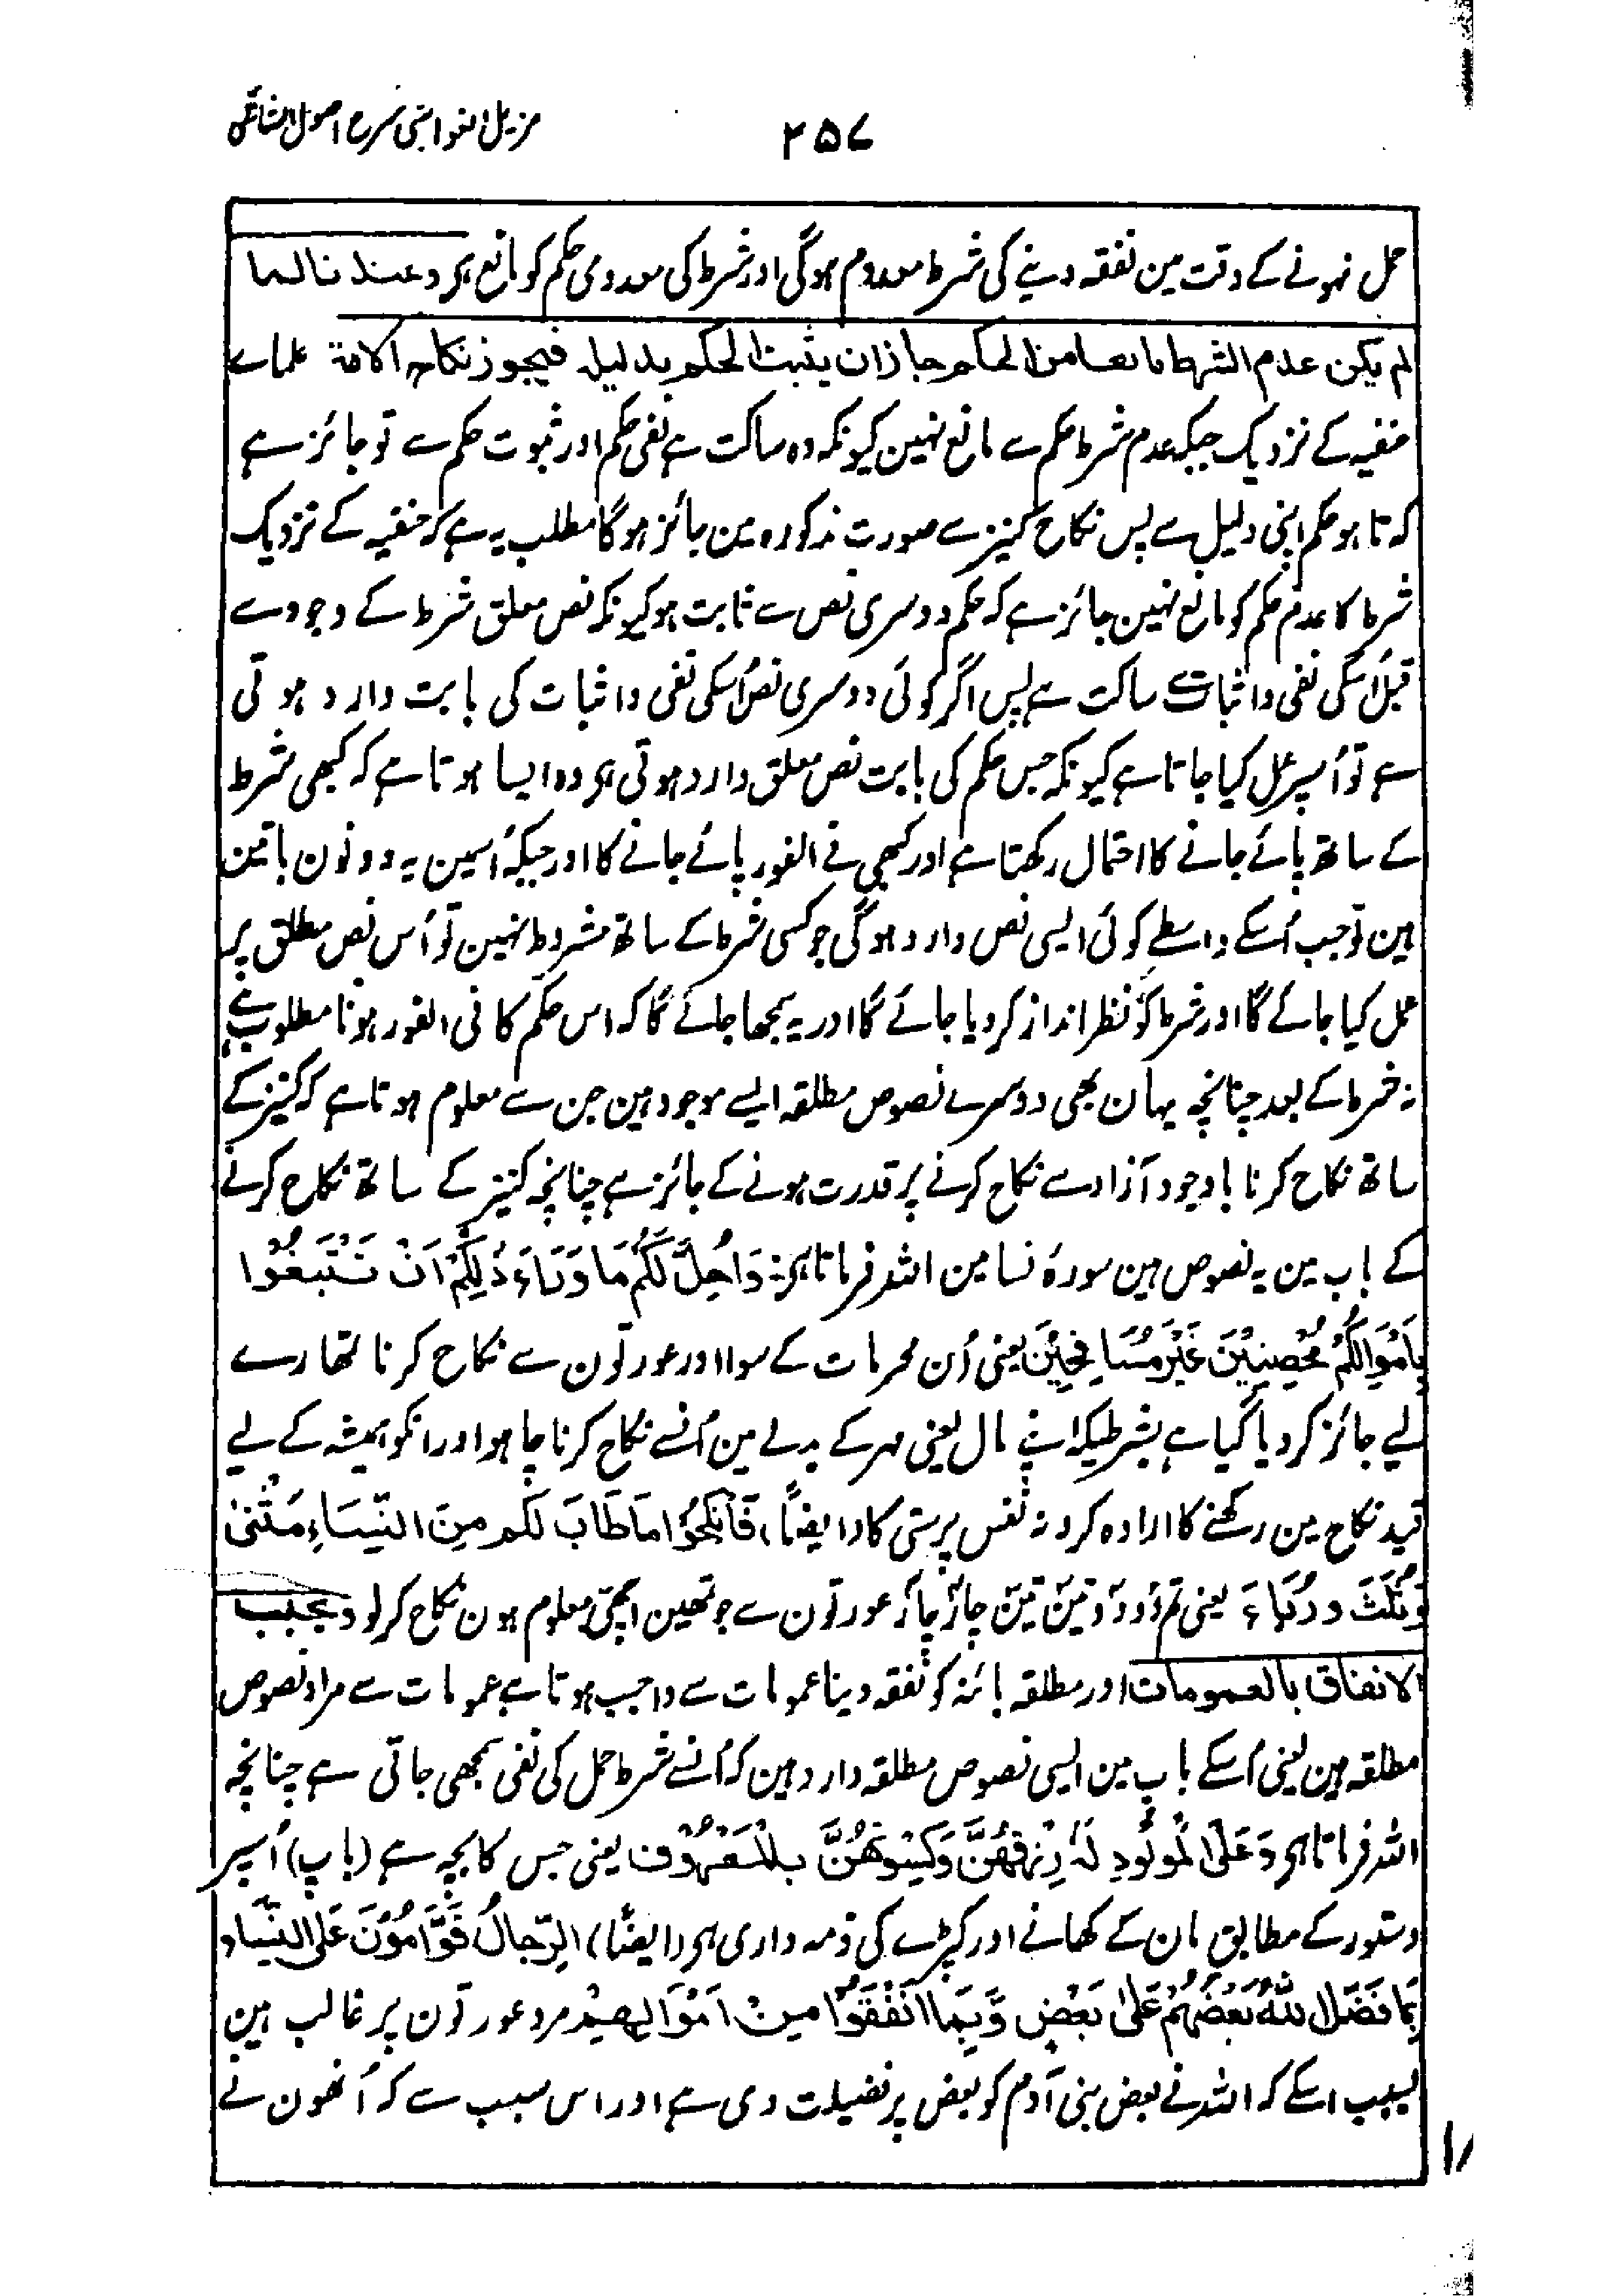 مزیل الغواشی شرح اصول الشاشی
۲۵۷
حمل نہونے کے وقت مین نفقہ دینے کی شرط معدوم ہوگی اور شرط کی معدومی حکم کو مانع ہر وعندنا لما
لم یکن عدم الشرط مانعا من الحکم جاز ان یثبت الحکم بدلیلہ فیجوز نکاح الامۃ علماے
حنفیہ کے نزدیک جبکہ عدم شرط حکم سے مانع نہین کیونکہ وہ ساکت ہے نفی حکم اور ثبوت حکم سے تو جائز ہے
کہ ثابت ہو حکم اپنی دلیل سے پس نکاح کنیز سے صورت مذکورہ مین جائز ہوگا مطلب یہ ہے کہ حنفیہ کے نزدیک
شرط کا عدم حکم کو مانع نہین جائز ہے کہ حکم دوسری نص سے ثابت ہو کیونکہ نص معلق شرط کے وجود سے
قبل اُسکی نفی واثبات سے ساکت ہے پس اگر کوئی دوسری نص اُسکی نفی واثبات کی بابت وارد ہوتی
ہے تو اُسپر عمل کیا جاتا ہے کیونکہ جس حکم کی بابت نص معلق وارد ہوتی ہر وہ ایسا ہوتا ہے کہ کبھی شرط
کے ساتھ پائے جانے کا احتمال رکھتا ہے اور کبھی فے الفور پائے جانے کا اور جبکہ اُسمین یہ دونون باتین
ہین تو جب اُسکے واسطے کوئی ایسی نص وارد ہوگی جو کسی شرط کے ساتھ مشروط نہین تو اُس نص مطلق پر
عمل کیا جائے گا اور شرط کو نظر انداز کر دیا جائے گا اور یہ سمجھا جائے گا کہ اس حکم کا فی الفور ہونا مطلوب ہے
نہ شرط کے بعد چنانچہ یہان بھی دوسرے نصوص مطلقہ ایسے موجود ہین جن سے معلوم ہوتا ہے کہ کنیز کے
ساتھ نکاح کرنا باوجود آزاد سے نکاح کرنے پر قدرت ہونے کے جائز ہے چنانچہ کنیز کے ساتھ نکاح کرنے
کے باب مین یہ نصوص ہین سورۂ نسا مین اللہ فرماتا ہر: وَاُحِلَّ لَکُمْ مَا وَرَاءَ ذٰلِکُمْ اَنْ تَبْتَغُوْا
بِاَمْوَالِکُمْ مُحْصِنِیْنَ غَیْرَ مُسَافِحِیْنَ یعنی اُن محرمات کے سوا اور عورتون سے نکاح کرنا تمھارے
لیے جائز کر دیا گیا ہے بشرطیکہ اپنے مال یعنی مہر کے بدلے مین اُنسے نکاح کرنا چاہو اور انکو ہمیشہ کے لیے
قید نکاح مین رکھنے کا ارادہ کرو نہ نفس پرستی کا (ایضاً) فَانْکِحُوْا مَا طَابَ لَکُمْ مِنَ النِّسَاءِ مَثْنٰی
وَثُلٰثَ وَرُبَاعَ یعنی تم دو دو تین تین چار چار عورتون سے جو تمھین اچھی معلوم ہون نکاح کر لو ویجب
الانفاق بالعمومات اور مطلقہ بائنہ کو نفقہ دینا عمومات سے واجب ہوتا ہے عمومات سے مراد نصوص
مطلقہ ہین یعنی اُسکے باب مین ایسی نصوص مطلقہ وارد ہین کہ اُنسے شرط حمل کی نفی سمجھی جاتی ہے چنانچہ
اللہ فرماتا ہر وَعَلَی الْمَوْلُوْدِ لَہٗ رِزْقُھُنَّ وَکِسْوَتُھُنَّ بِالْمَعْرُوْفِ یعنی جس کا بچہ ہے (باپ) اُسپر
دستور کے مطابق مان کے کھانے اور کپڑے کی ذمہ داری ہر (ایضاً) اَلرِّجَالُ قَوَّامُوْنَ عَلَی النِّسَاءِ
بِمَا فَضَّلَ اللّٰہُ بَعْضَھُمْ عَلٰی بَعْضٍ وَّبِمَا اَنْفَقُوْا مِنْ اَمْوَالِھِمْ مرد عورتون پر غالب ہین
بسبب اسکے کہ اللہ نے بعض بنی آدم کو بعض پر فضیلت دی ہے اور اس سبب سے کہ اُنھون نے